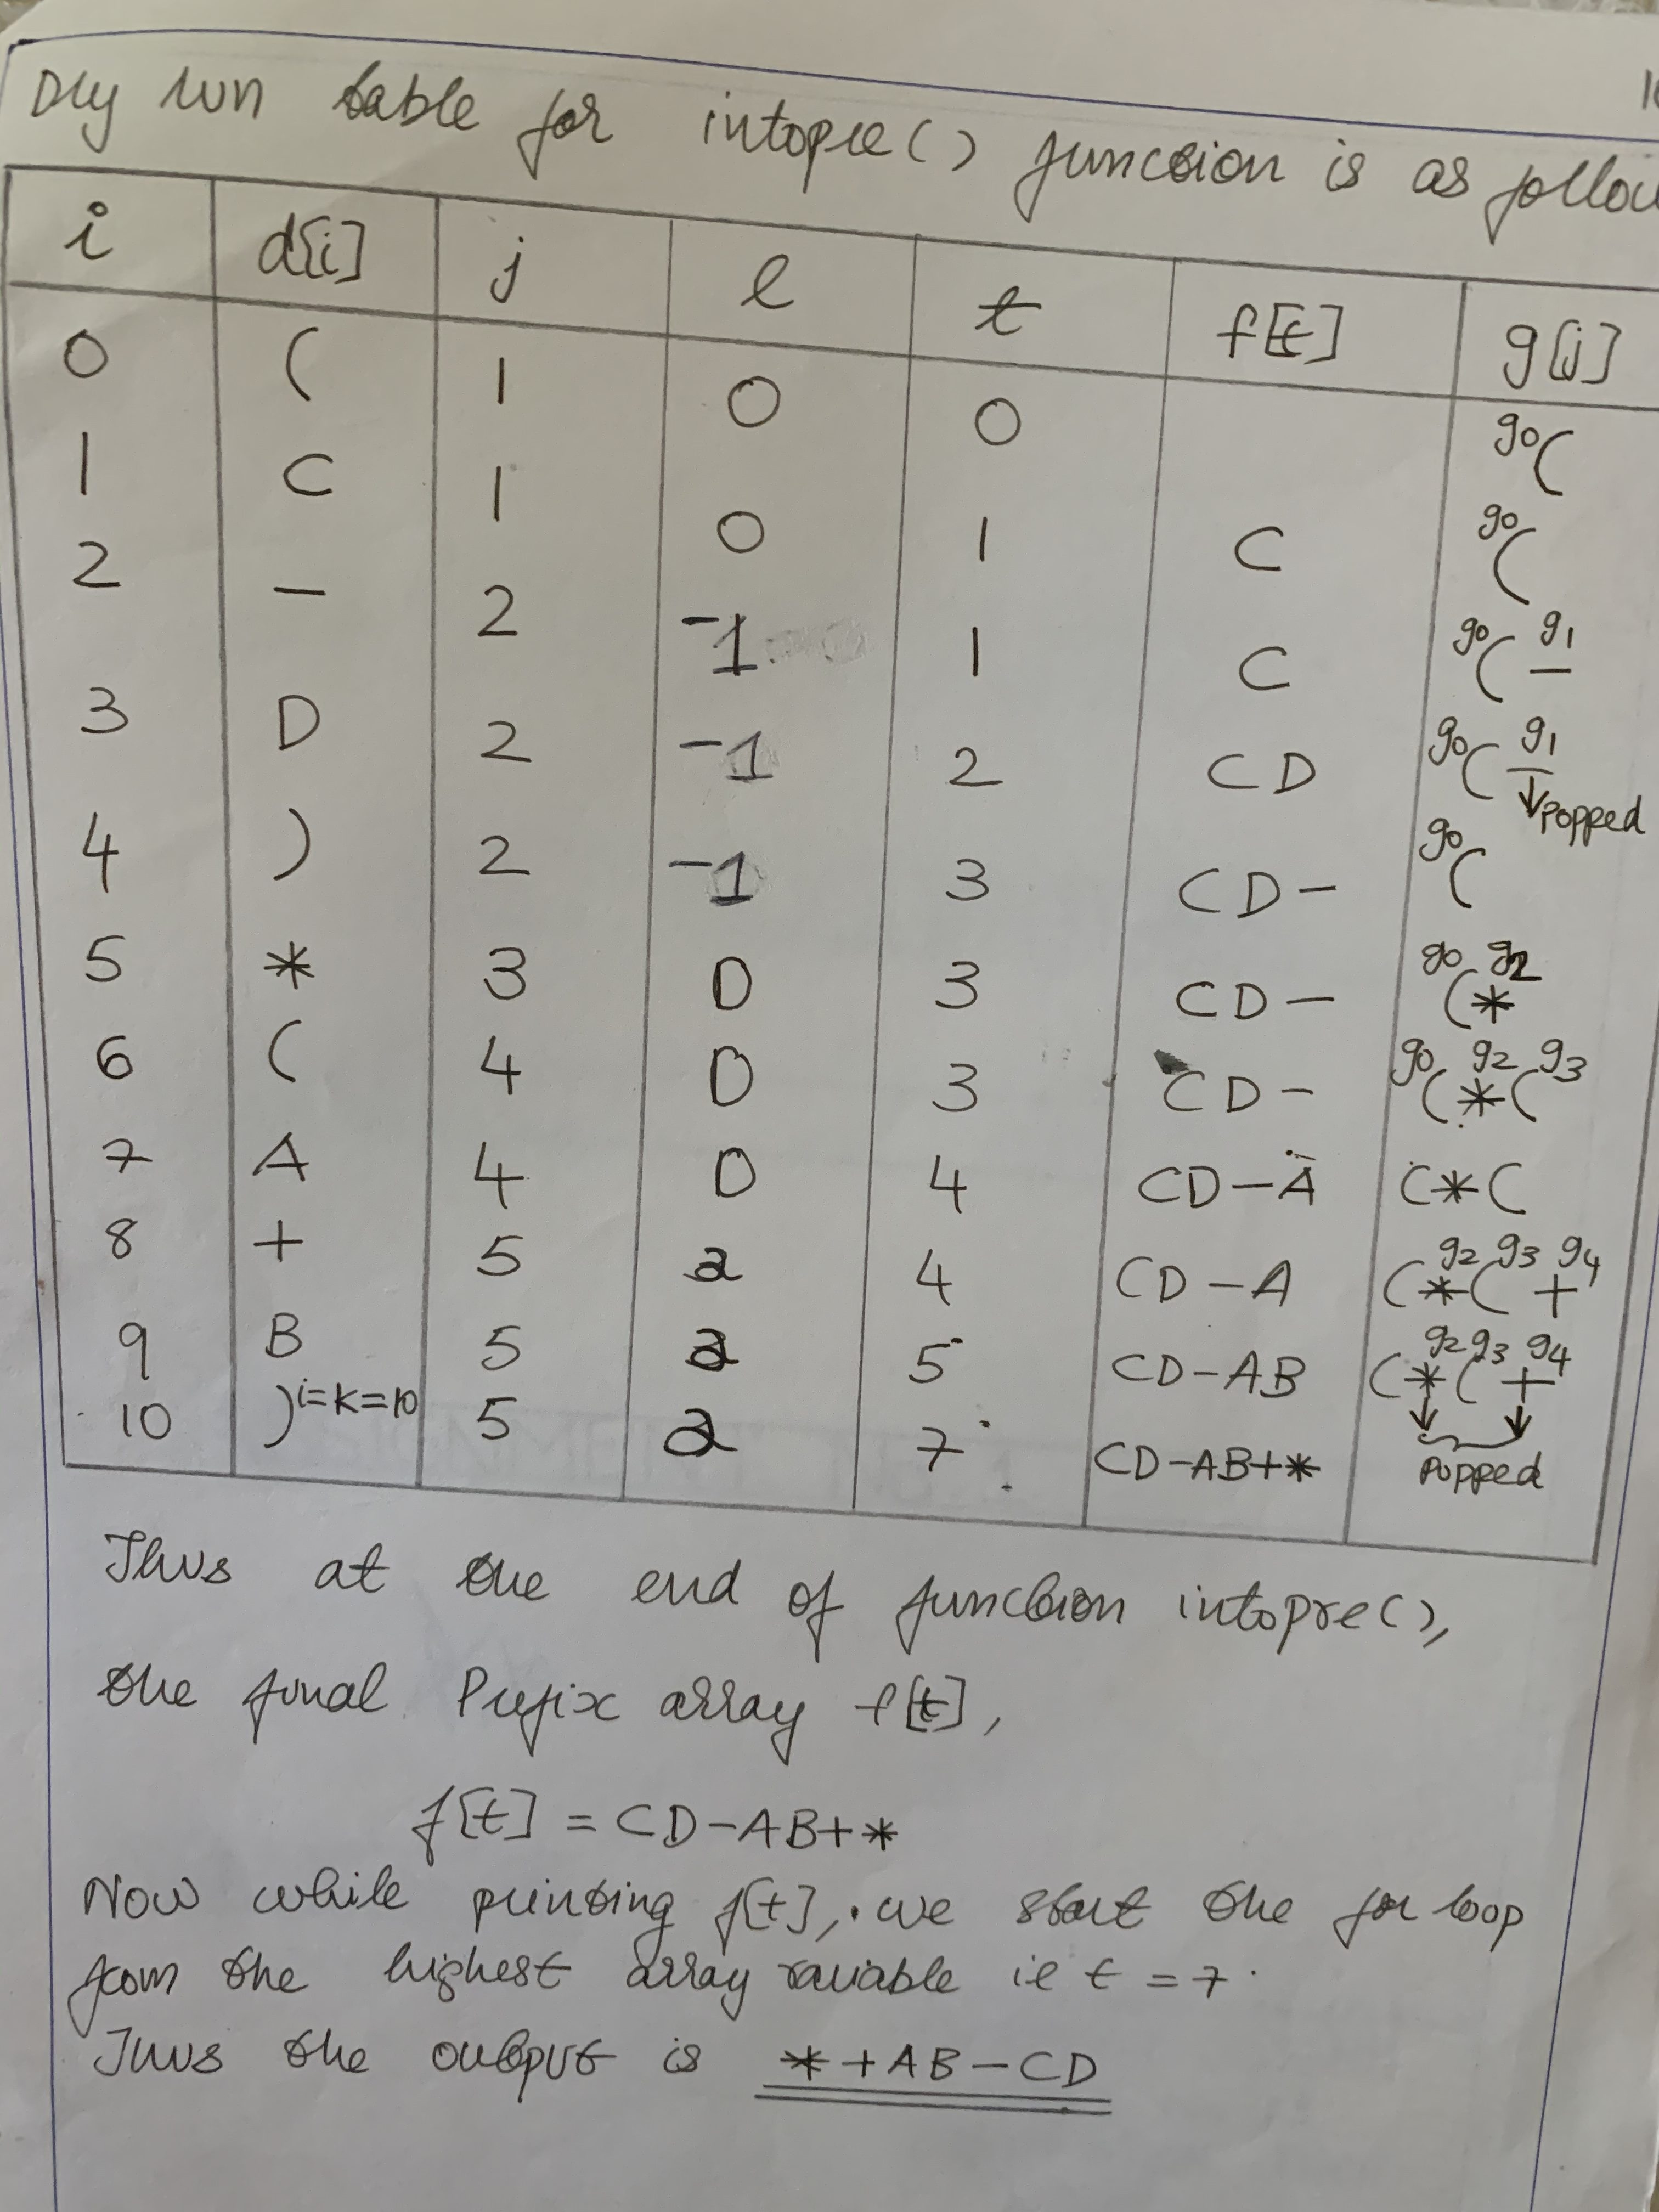 Dry run table for intopre() function is as
i d[i] j l t f[t] g[j]
0 ( 1 0 0 g0(
1 C 1 0 1 C g0(
2 - 2 -1 1 C g0( g1-
3 D 2 -1 2 CD g0( g1- ↓popped
4 ) 2 -1 3 CD- g0(
5 * 3 0 3 CD- g0( g2*
6 ( 4 0 3 CD- g0( g2* g3(
7 A 4 0 4 CD-A (*(
8 + 5 2 4 CD-A ( g2* g3( g4+
9 B 5 2 5 CD-AB ( g2* g3( g4+
10 ) i=k=10 5 2 7 CD-AB+* popped
Thus at the end of function intopre(),
the final Prefix array f[t],
f[t] = CD-AB+*
Now while printing f[t], we start the for loop
from the highest array variable ie t = 7.
Thus the output is *+AB-CD